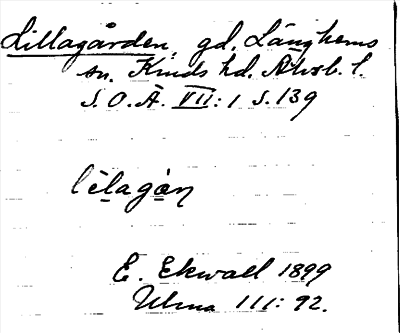 Lillagården, gd. Länghems
sn. Kinds hd. Älvsb. l.
S.O.Ä. VII:1 s. 139
lèlagȧn
E. Ekwall 1899
Ulma 111: 92.